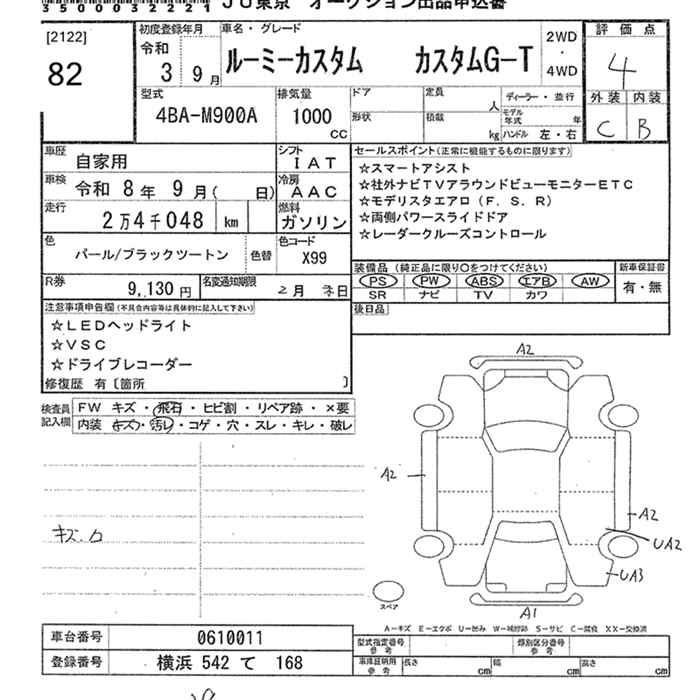 35000032221 JU東京 オークション出品申込書
[2122]
82
初度登録年月
令和
3 9月
車名・グレード
ルーミーカスタム カスタムG-T
2WD
・
4WD
評価点
4
外装 内装
C B
型式
4BA-M900A
排気量
1000
cc
ドア
形状
定員
人
積載
kg
ディーラー・並行
モデル年式 年
ハンドル 左・右
車歴
自家用
シフト
IAT
車検
令和 8年 9月( 日)
冷房
AAC
走行
2万4千048 km
燃料
ガソリン
色
パール/ブラックツートン
色替
色コード
X99
R券
9,130円
名変通知期限
2月 末日
セールスポイント(正常に機能するものに限ります)
☆スマートアシスト
☆社外ナビTVアラウンドビューモニターETC
☆モデリスタエアロ(F.S.R)
☆両側パワースライドドア
☆レーダークルーズコントロール
装備品(純正品に限り○をつけてください)
PS PW ABS エアB AW
SR ナビ TV カワ
新車保証書
有・無
後日品
注意事項申告欄(不具合内容等は具体的に記入して下さい)
☆LEDヘッドライト
☆VSC
☆ドライブレコーダー
修復歴 有〔箇所 〕
検査員記入欄
FW キズ・飛石・ヒビ割・リペア跡・×要
内装 キズ・汚レ・コゲ・穴・スレ・キレ・破レ
キズ.
A2
A2
A2
UA2
UA3
A1
スペア
A-キズ E-エクボ U-凹み W-補修跡 S-サビ C-腐食 XX-交換済
車台番号 0610011
登録番号 横浜 542 て 168
型式指定番号
参考
類別区分番号
参考
車庫証明用
参考
長さ cm
幅 cm
高さ cm